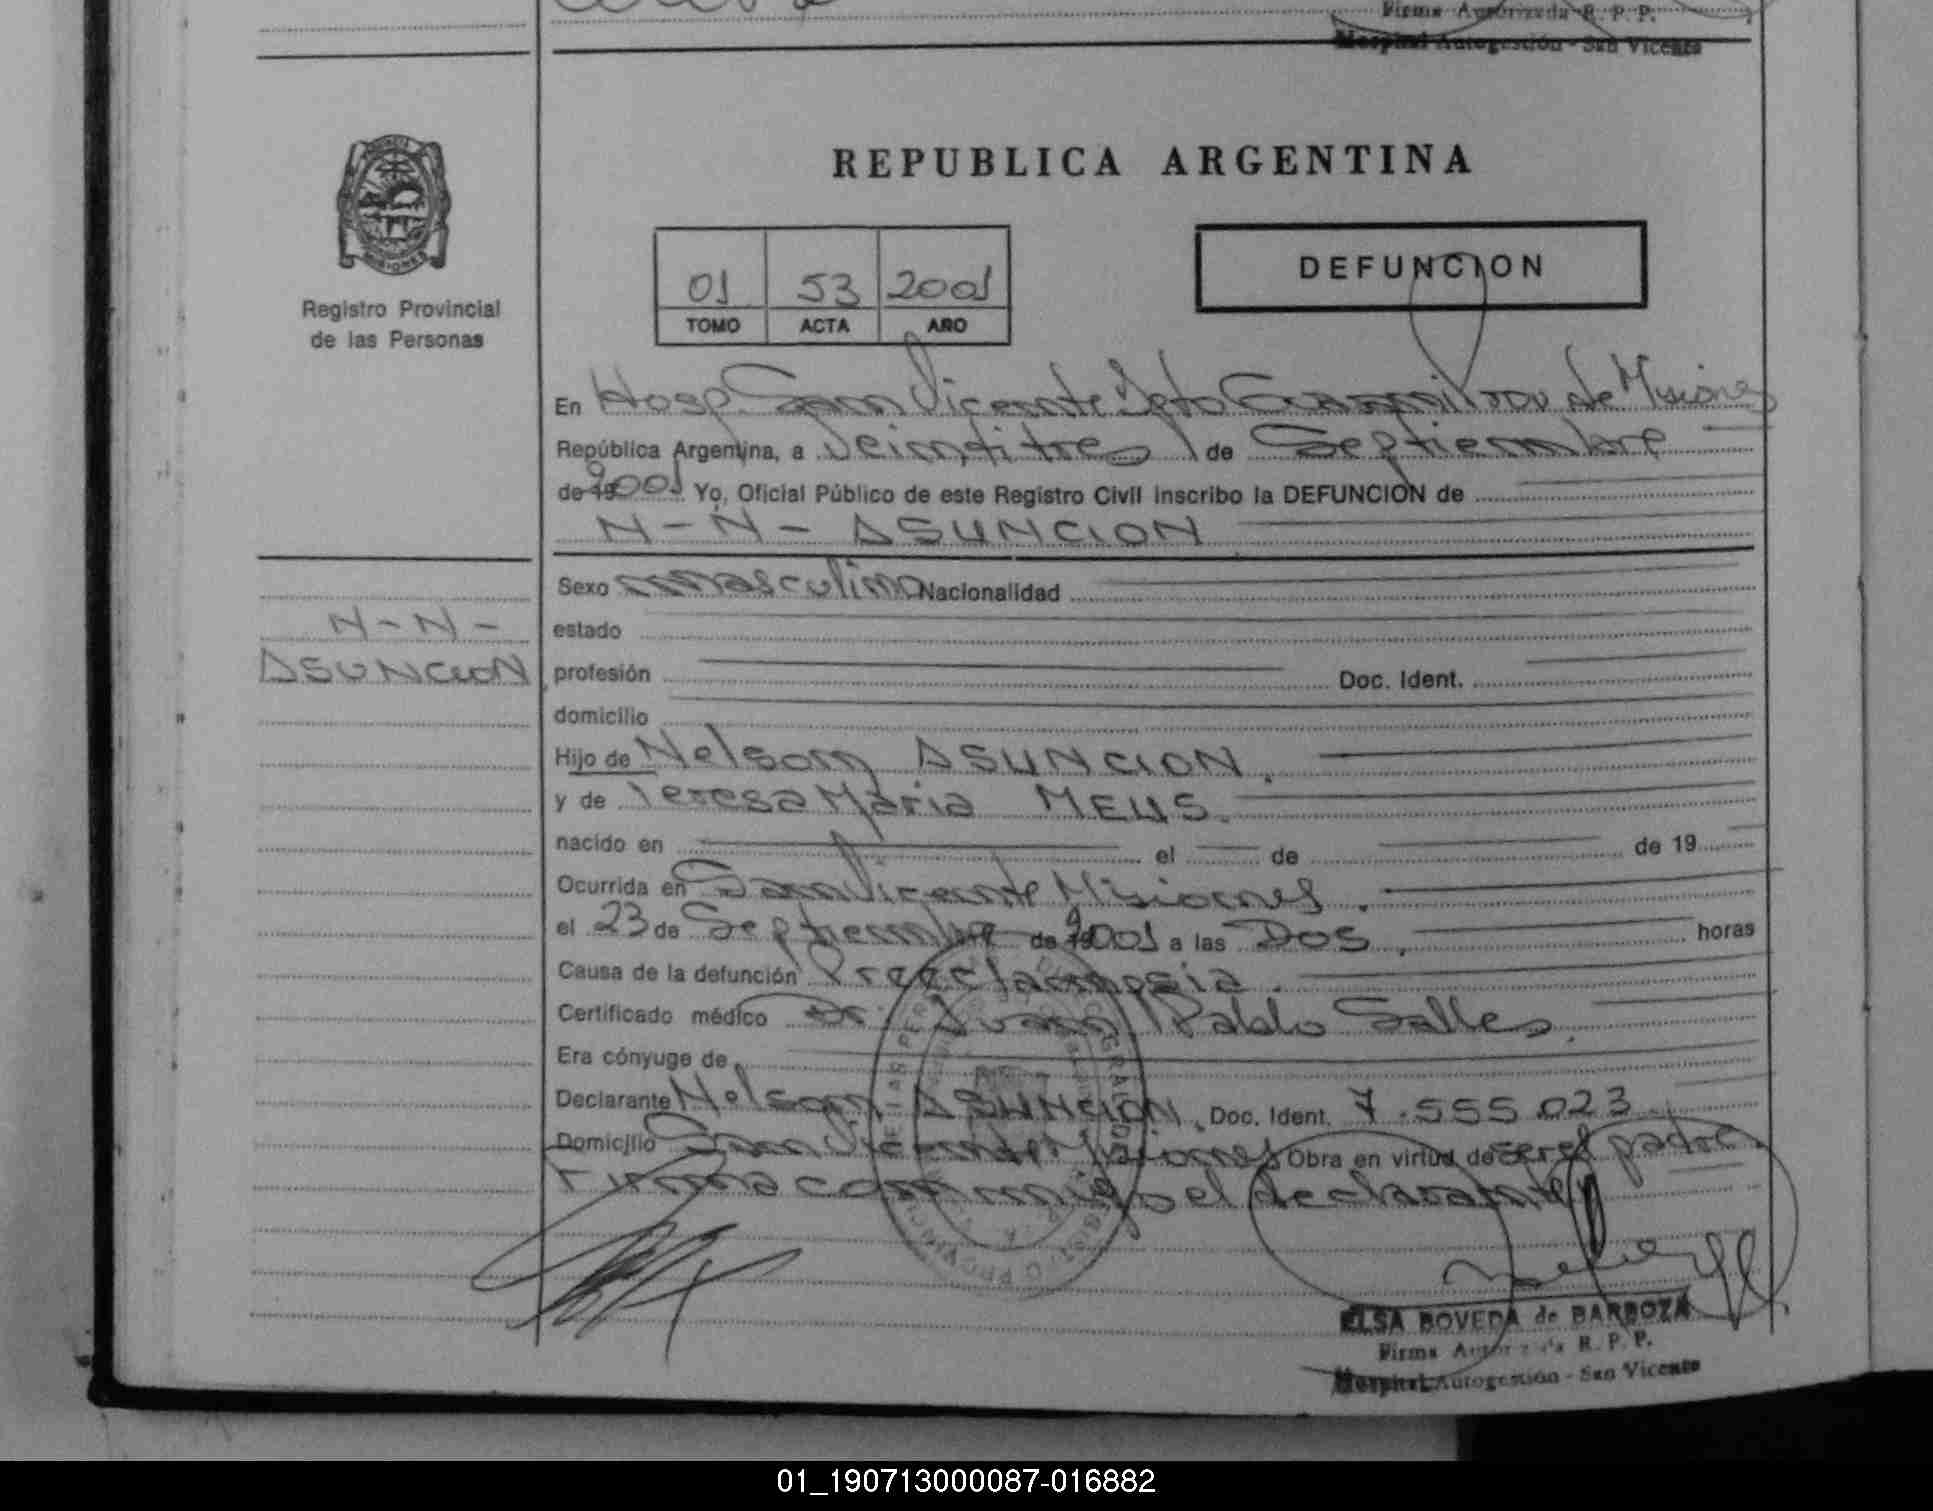 Firma Autorizada R. P. P.
Hospital Autogestión - San Vicente
PROVINCIA
MISIONES
Registro Provincial
de las Personas
REPUBLICA ARGENTINA
01 53 2001
TOMO ACTA AÑO
DEFUNCION
En Hosp. San Vicente Dpto Guaraní Prov de Misiones
República Argentina, a Veintitres de Septiembre
de 19 2001 Yo, Oficial Público de este Registro Civil inscribo la DEFUNCION de
N - N - ASUNCION
Sexo masculino Nacionalidad
estado
N - N -
ASUNCION
profesión Doc. Ident.
domicilio
Hijo de Nelson ASUNCION.
y de Teresa Maria MEUS.
nacido en el de de 19
Ocurrida en San Vicente Misiones.
el 23 de Septiembre de 19 2001 a las Dos. horas
Causa de la defunción Preeclampsia.
Certificado médico Dr. Juan Pablo Salles.
Era cónyuge de
Declarante Nelson ASUNCION. Doc. Ident. 7.555.023
Domicilio San Vicente Misiones Obra en virtud de ser el padre.
Firma conmigo el declarante
ELSA BOVEDA de BARBOZA
Firma Autorizada R. P. P.
Hospital Autogestión - San Vicente
01_190713000087-016882